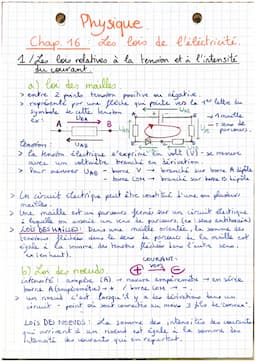 Physique
Chap. 16 : Les lois de l'électricité.
1/ Les lois relatives à la tension et à l'intensité
du courant.
a) Loi des mailles.
> entre 2 points tension positive ou négative.
> représenté par une flèche qui pointe vers la 1ère lettre du
symbole de cette tension
ex:
UAB
A
B
UBA
1 maille
= sens de
parcours.
tension :
> la tension électrique s'exprime en volt (V) - se mesure
avec un voltmètre branché en dérivation.
> Pour mesurer UAB - borne V → branché sur borne A dipôle
- borne COM → branché sur borne B dipôle
> Un circuit électrique peut être constitué d'une ou plusieurs
mailles.
> Une maille est un parcours fermé sur un circuit électrique
à laquelle on associe un sens de parcours.
> LOI DES MAILLES : Dans une maille orientée, la somme des
tensions fléchées dans le sens de parcours de la maille est
égale à la somme des tensions fléchées dans l'autre sens.
ex (en haut).
COURANT :
b) Loi des noeuds.
intensité : ampère (A) → mesure ampèremètre → en série
borne A (ampèremètre) → + / borne COM : -
> un noeud c'est lorsqu'il y a des dérivations dans un
circuit - point où sont connectés au moins 3 fils de connex°.
LOIS DES NOEUDS : La somme des intensités des courants
qui arrivent à un noeud est égale à la somme des
intensités des courants qui en repartent.